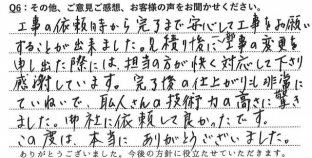 Q6：その他、ご意見ご感想、お客様の声をお聞かせください。
工事の依頼時から完了まで安心して工事をお願い
することが出来ました。見積り後に工事の変更を
申し出た際には、担当の方が快く対応して下さり
感謝しています。完了後の仕上がりも非常に
ていねいで、職人さんの技術力の高さに驚き
ました。御社に依頼して良かったです。
この度は、本当に ありがとうございました。
ありがとうございました。今後の方針に役立たせていただきます。